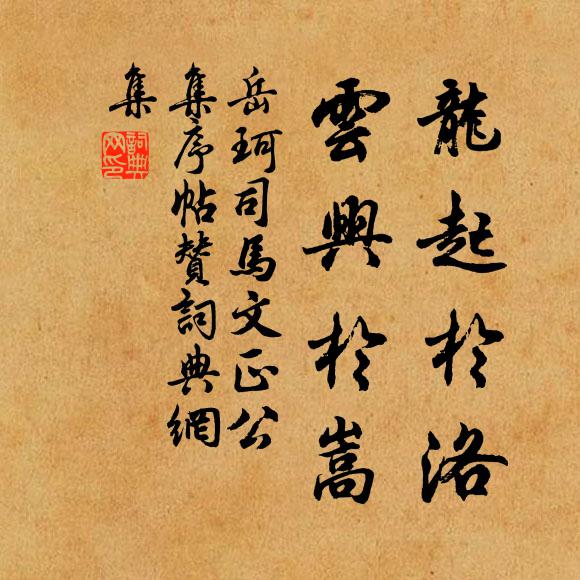 龍起於洛
雲興於嵩
岳珂司馬文正公
集序帖贊詞典網
集
詞典
网印